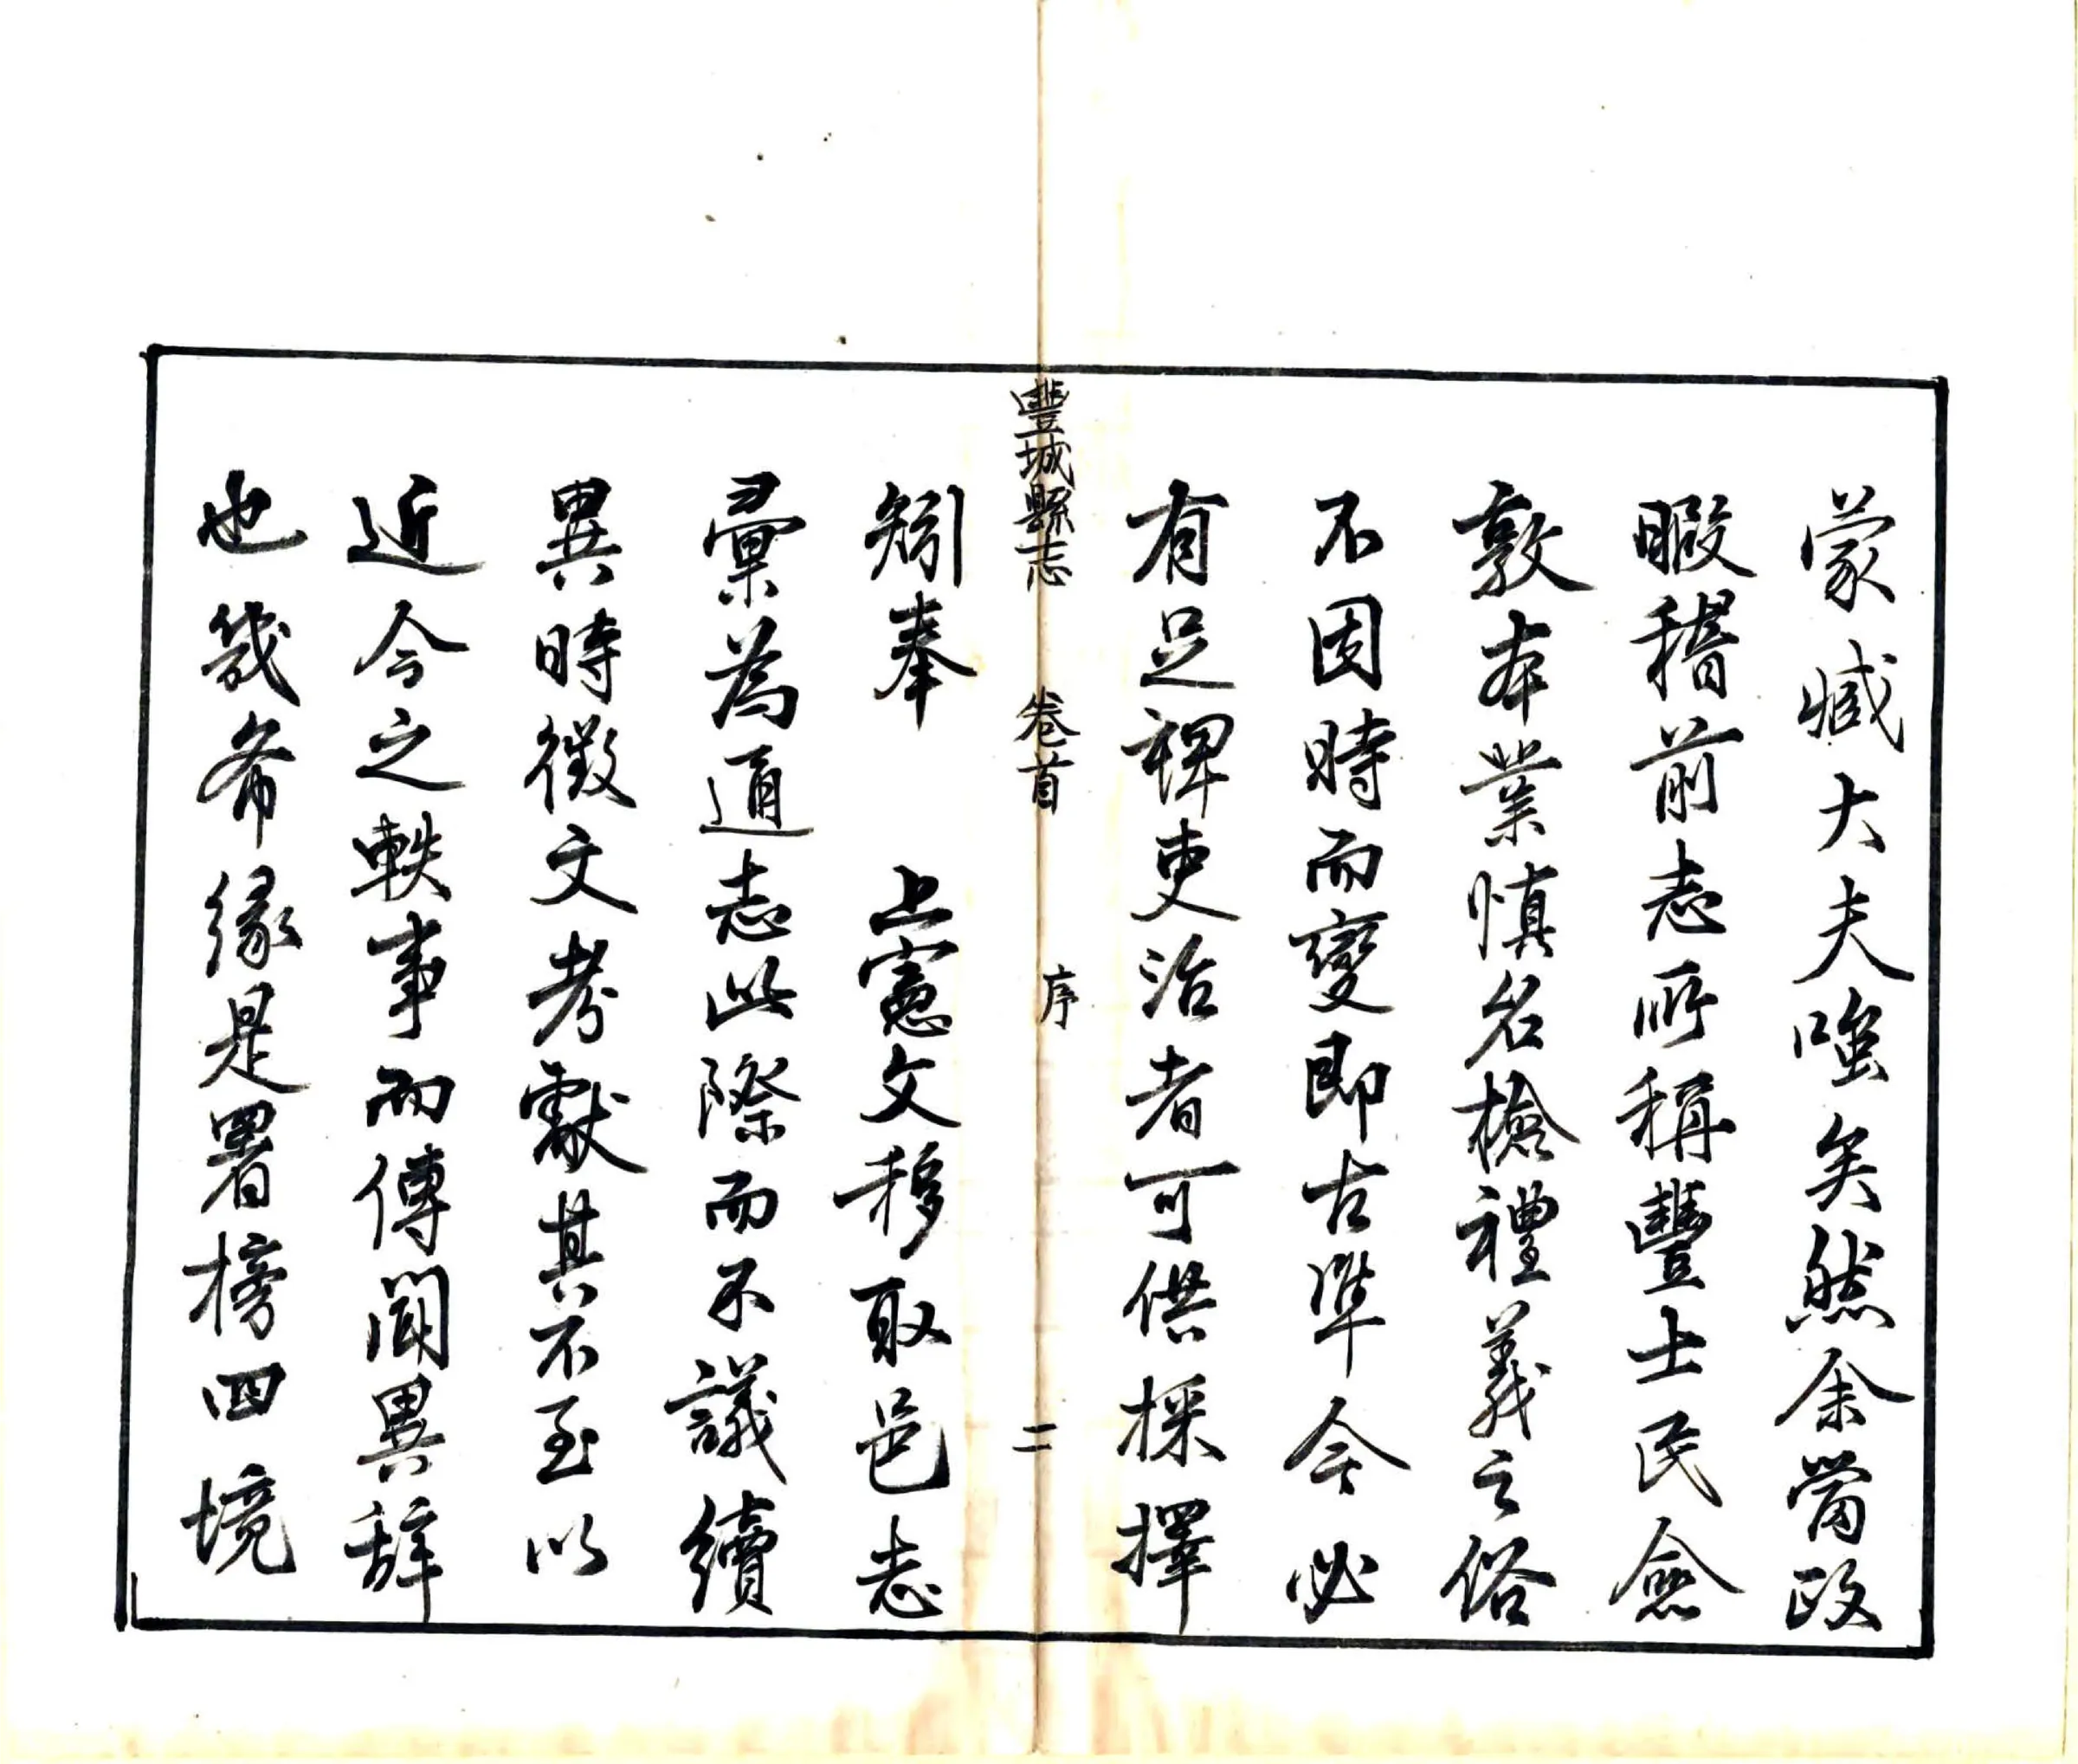 蒙臧大夫嗤矣然余嘗政
暇稽前志所稱豐士民僉
敦本業慎名檢禮義之俗
不因時而變即古準今必
有足裨吏治者可供採擇
豐城縣志 卷首 序 二
矧奉 上憲文移取邑志
彙為通志此際而不議續
異時徵文考獻其不至以
近今之軼事而傳聞異辭
也幾希緣是署榜四境